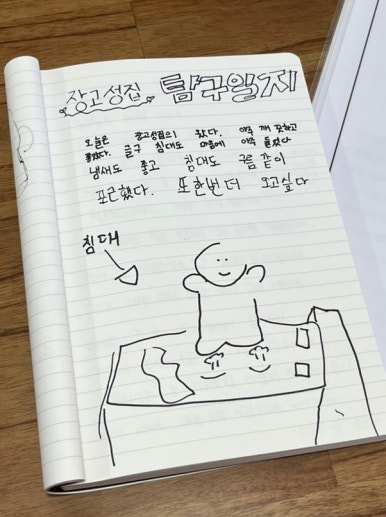 장고성집 탐구일지
오늘은 장고성집으니 왔다. 아주 깨끗하고
좋았다. 글구 침대도 마음에 아주 들었다
냄새도 좋고 침대도 구름같이
포근했다. 또한번 더 오고싶다
침대